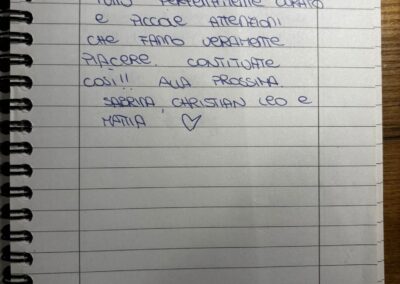 TUTTO PERFETTAMENTE CURATO
E PICCOLE ATTENZIONI
CHE FANNO VERAMENTE
PIACERE. CONTINUATE
COSÌ!! ALLA PROSSIMA.
SABRINA, CHRISTIAN LEO E
MATTIA ♡